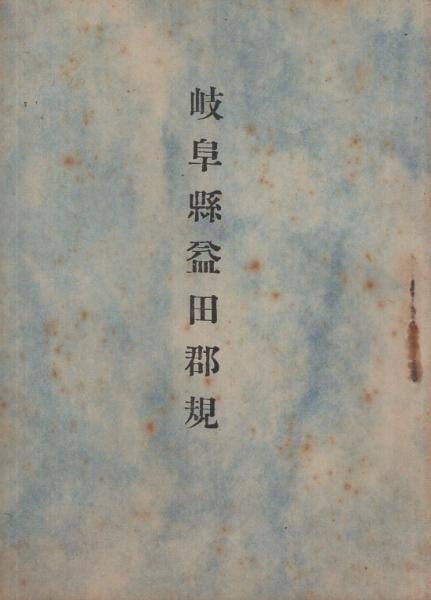 岐阜縣益田郡規